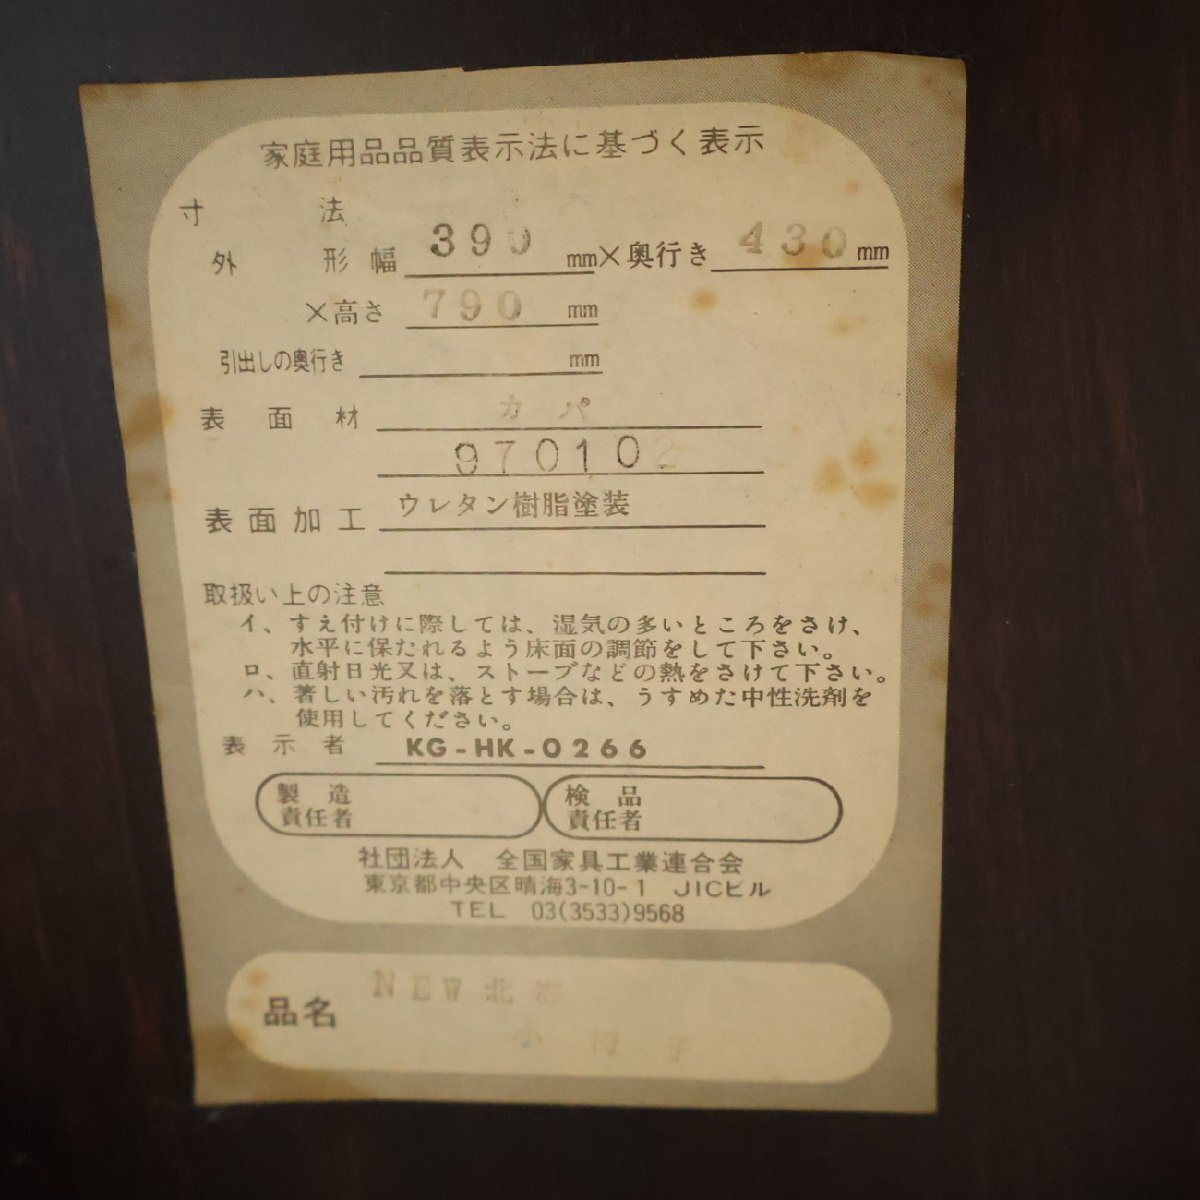 家庭用品品質表示法に基づく表示
寸法
外形幅 390 mm×奥行き 430 mm
×高さ 790 mm
引出しの奥行き mm
表面材 カバ
970102
表面加工 ウレタン樹脂塗装
取扱い上の注意
イ、すえ付けに際しては、湿気の多いところをさけ、
水平に保たれるよう床面の調節をして下さい。
ロ、直射日光又は、ストーブなどの熱をさけて下さい。
ハ、著しい汚れを落とす場合は、うすめた中性洗剤を
使用してください。
表示者 KG-HK-0266
製造 検品
責任者 責任者
社団法人 全国家具工業連合会
東京都中央区晴海3-10-1 JICビル
TEL 03(3533)9568
品名 NEW北海
小 子